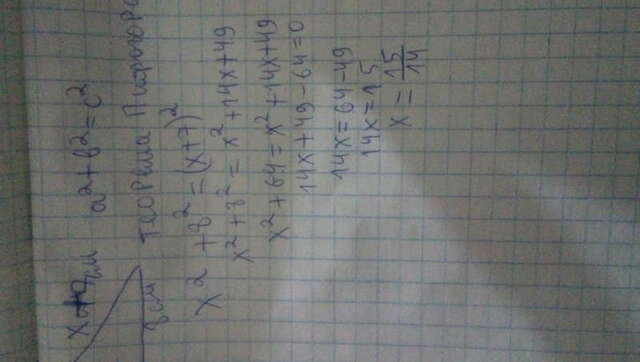 см a² + b² = c²
8 см теорема Пифагора
x² + 8² = (x+7)²
x² + 8² = x² + 14x + 49
x² + 64 = x² + 14x + 49
14x + 49 - 64 = 0
14x = 64 - 49
14x = 15
x = 15/14